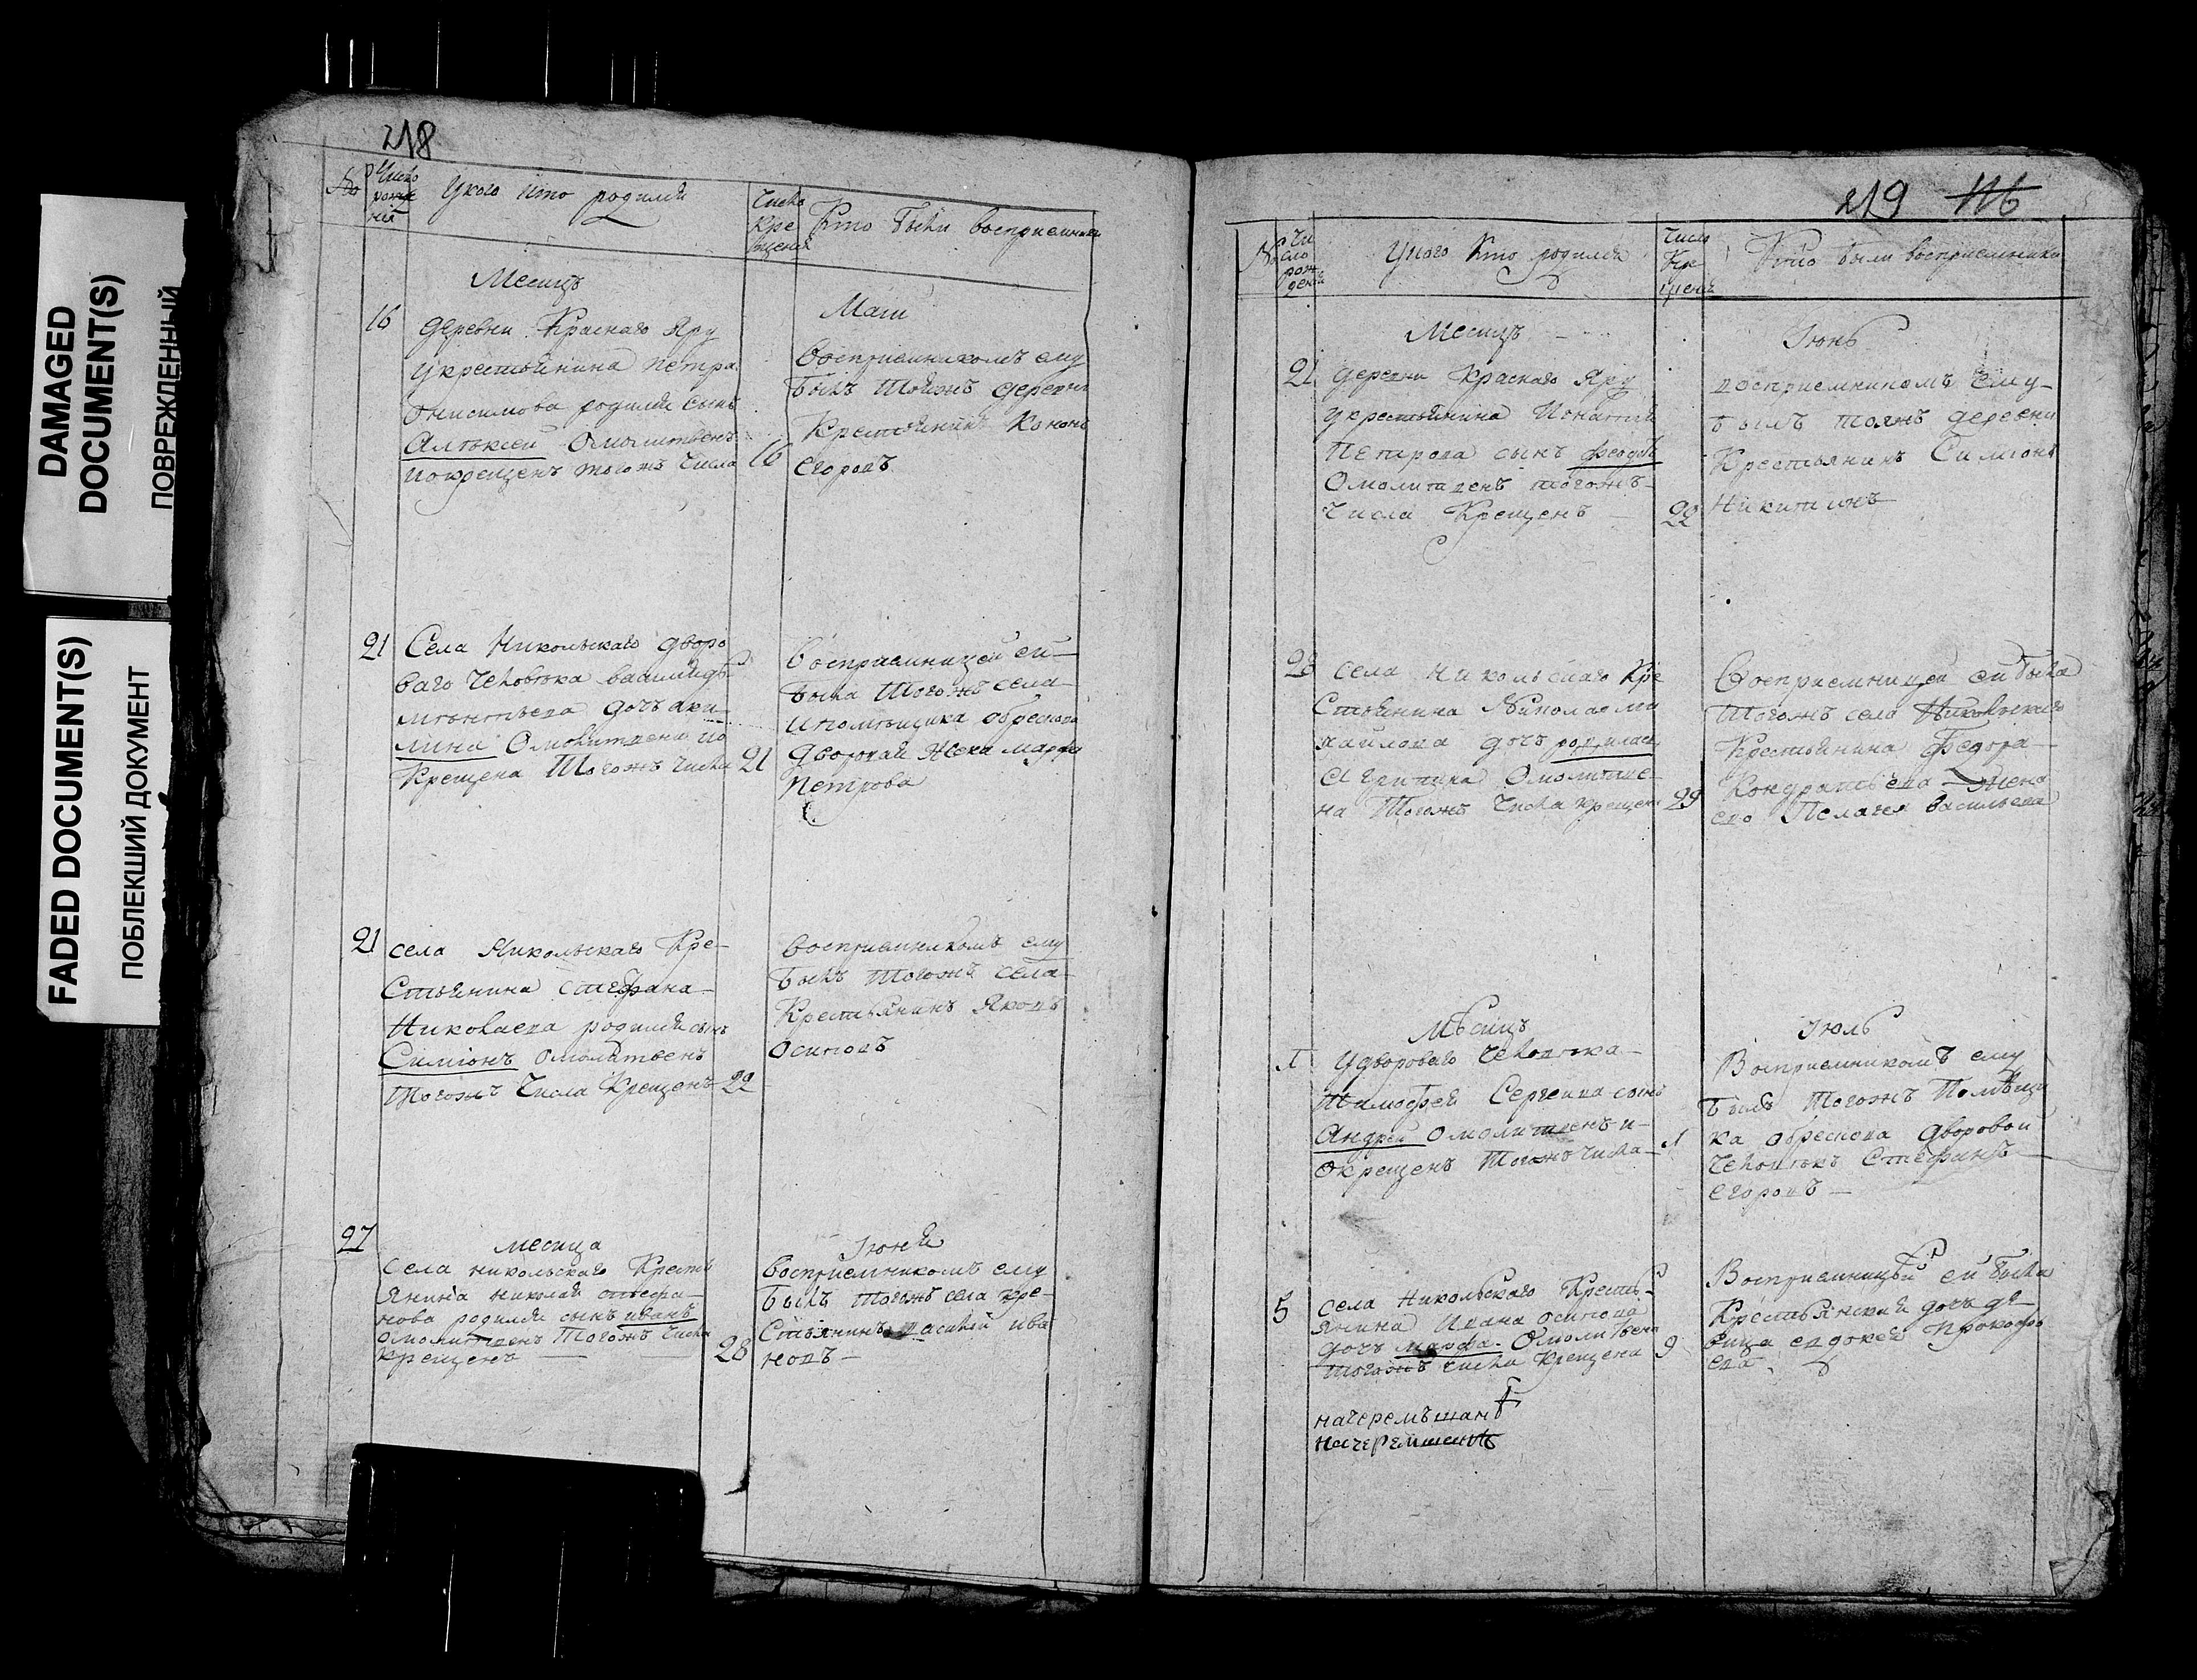 DAMAGED
DOCUMENT(S)
ПОВРЕЖДЕННЫЙ
FADED DOCUMENT(S)
ПОБЛЕКШИЙ ДОКУМЕНТ
218
№
Число
рожде
нія
У кого кто родился
Число
Кре
щенія
Кто были восприемники
Месяцъ
Маій
16
деревни Краснаго Яру
у крестьянина Петра
Онисимова родился сынъ
Алѣксей Омолитвенъ
и окрещенъ тогожъ числа
16
Восприемникомъ ему
былъ тояжъ деревни
Крестьянинъ Кононъ
Егоровъ
21
Села Никольскаго дворо
ваго человѣка
дочъ аки
лина Омолитвена ио
Крещена Тогожъ числа
21
Восприемницей ей
была Тогожъ села
ипомѣщика обрескова
дворовая Жена марфа
Петрова
21
села Никольскаго Кре
Стьянина стефана
Николаева родился сынъ
Симіонъ омолитвенъ
Тогожъ Числа Крещенъ
22
Восприемникомъ ему
былъ тогожъ села
Крестьянинъ Яковъ
Осиповъ
27
месяца
Іюня
села никольскаго Кресть
янина николая стефа
нова родился сынъ иванъ
омолитвенъ Тогожъ числа
крещенъ
28
Восприемникомъ ему
былъ тогожъ села кре
Стьянинъ василей ива
новъ
219
№
Чи
сло
рож
денія
У кого Кто родился
Число
Кре
щенія
Кто были восприемники
Месяцъ
Іюнь
21
деревни Краснаго Яру
у крестьянина Игнатия
Петрова сынъ феодоръ
Омолитвенъ тогожъ
Числа Крещенъ
22
восприемникомъ ему
былъ тояжъ деревни
Крестьянинъ Симіонъ
Никитинъ
села никольскаго Кре
Стьянина Николая ми
хайлова дочъ родилась
Агрипина Омолитве
на Тогожъ Числа крещена
29
Восприемницей ей была
Тогожъ села Никольскаго
Крестьянина Федора
Кондратьева Жена
ево Пелагея Васильева
Мѣсяцъ
Іюль
1
У двороваго Человѣка
Тимофея Сергеива сынъ
Андрей омолитвенъ и
окрещенъ Тогожъ числа
1
Восприемникомъ ему
былъ Тогожъ Помѣщи
ка обрескова дворовои
Человѣкъ Стефанъ
Егоровъ
5
села Никольскаго Кресть
янина Ивана осипова
дочъ марфа Омолитвена
тогожъ числа Крещена
9
Восприемницѣй ей была
Крестьянская дочъ дѣ
вица евдокея Прокофи
ева
начеремъшанѣ